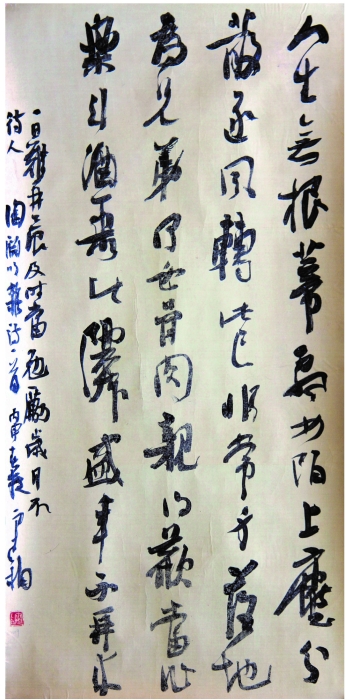 人生無根蒂飄如陌上塵分
散逐風轉此已非常身落地
為兄弟何必骨肉親得歡當作
樂斗酒聚比鄰盛年不再來
一日難再晨及時當勉勵歲月不
待人 陶淵明雜詩一首